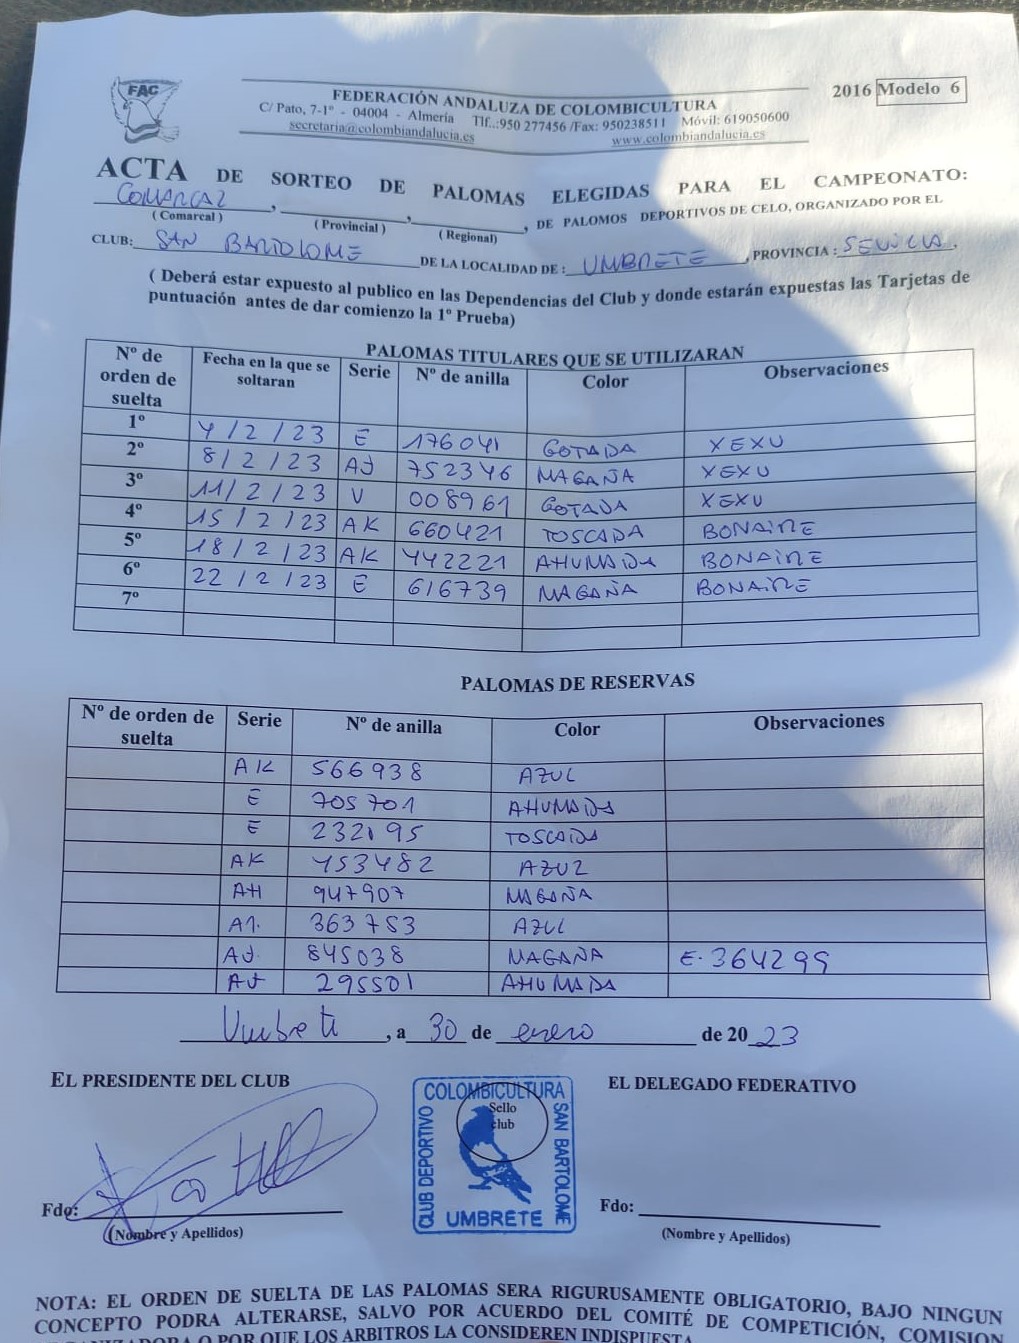 FAC
FEDERACIÓN ANDALUZA DE COLOMBICULTURA
2016 Modelo 6
C/ Pato, 7-1º - 04004 - Almería Tlf..:950 277456 /Fax: 950238511 Móvil: 619050600
secretaria@colombiandalucia.es www.colombiandalucia.es
ACTA DE SORTEO DE PALOMAS ELEGIDAS PARA EL CAMPEONATO:
COMARCAL, , , DE PALOMOS DEPORTIVOS DE CELO, ORGANIZADO POR EL
( Comarcal ) ( Provincial ) ( Regional)
CLUB: SAN BARTOLOME DE LA LOCALIDAD DE : UMBRETE , PROVINCIA : SEVILLA .
( Deberá estar expuesto al publico en las Dependencias del Club y donde estarán expuestas las Tarjetas de
puntuación antes de dar comienzo la 1º Prueba)
PALOMAS TITULARES QUE SE UTILIZARAN
Nº de orden de suelta Fecha en la que se soltaran Serie Nº de anilla Color Observaciones
1º 4/2/23 E 176041 GOTADA XEXU
2º 8/2/23 AJ 752346 MAGAÑA XEXU
3º 11/2/23 V 008961 GOTADA XEXU
4º 15/2/23 AK 660421 TOSCADA BONAIRE
5º 18/2/23 AK 442221 AHUMADA BONAIRE
6º 22/2/23 E 616739 MAGAÑA BONAIRE
7º
PALOMAS DE RESERVAS
Nº de orden de suelta Serie Nº de anilla Color Observaciones
AK 566938 AZUL
E 705701 AHUMADA
E 232195 TOSCADA
AK 453482 AZUL
AH 947907 MAGAÑA
363753 AZUL
AJ 845038 MAGAÑA E-364299
AJ 295501 AHUMADA
Umbrete , a 30 de enero de 2023
EL PRESIDENTE DEL CLUB
EL DELEGADO FEDERATIVO
COLOMBICULTURA
CLUB DEPORTIVO
SAN BARTOLOME
UMBRETE
Sello
club
Fdo:
(Nombre y Apellidos)
Fdo:
(Nombre y Apellidos)
NOTA: EL ORDEN DE SUELTA DE LAS PALOMAS SERA RIGURUSAMENTE OBLIGATORIO, BAJO NINGUN
CONCEPTO PODRA ALTERARSE, SALVO POR ACUERDO DEL COMITÉ DE COMPETICIÓN,
O POR QUE LOS ARBITROS LA CONSIDEREN INDISPUESTA